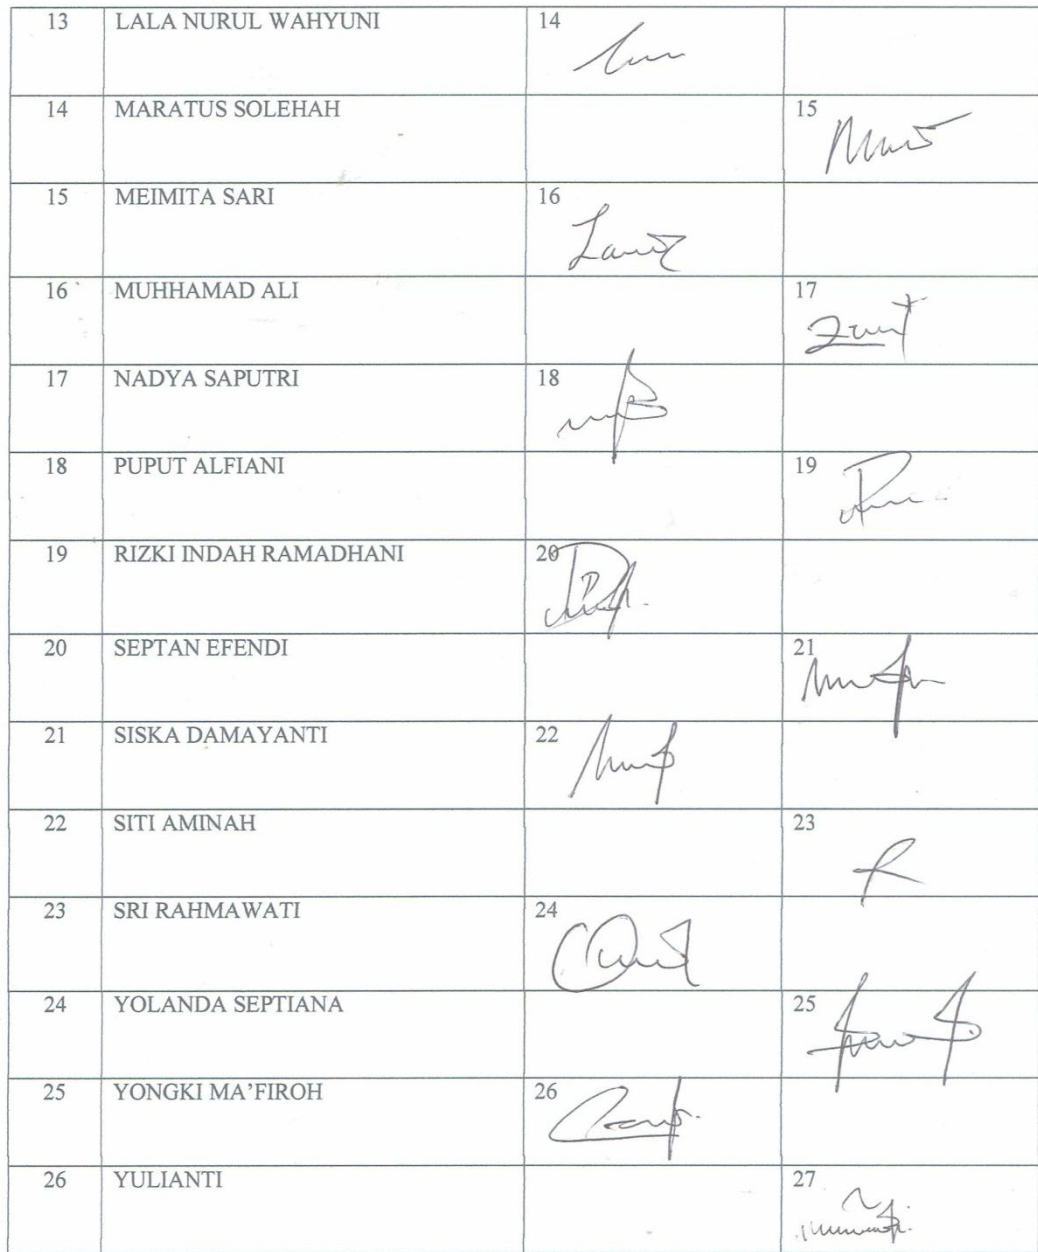 13 LALA NURUL WAHYUNI 14
14 MARATUS SOLEHAH 15
15 MEIMITA SARI 16
16 MUHHAMAD ALI 17
17 NADYA SAPUTRI 18
18 PUPUT ALFIANI 19
19 RIZKI INDAH RAMADHANI 20
20 SEPTAN EFENDI 21
21 SISKA DAMAYANTI 22
22 SITI AMINAH 23
23 SRI RAHMAWATI 24
24 YOLANDA SEPTIANA 25
25 YONGKI MA’FIROH 26
26 YULIANTI 27